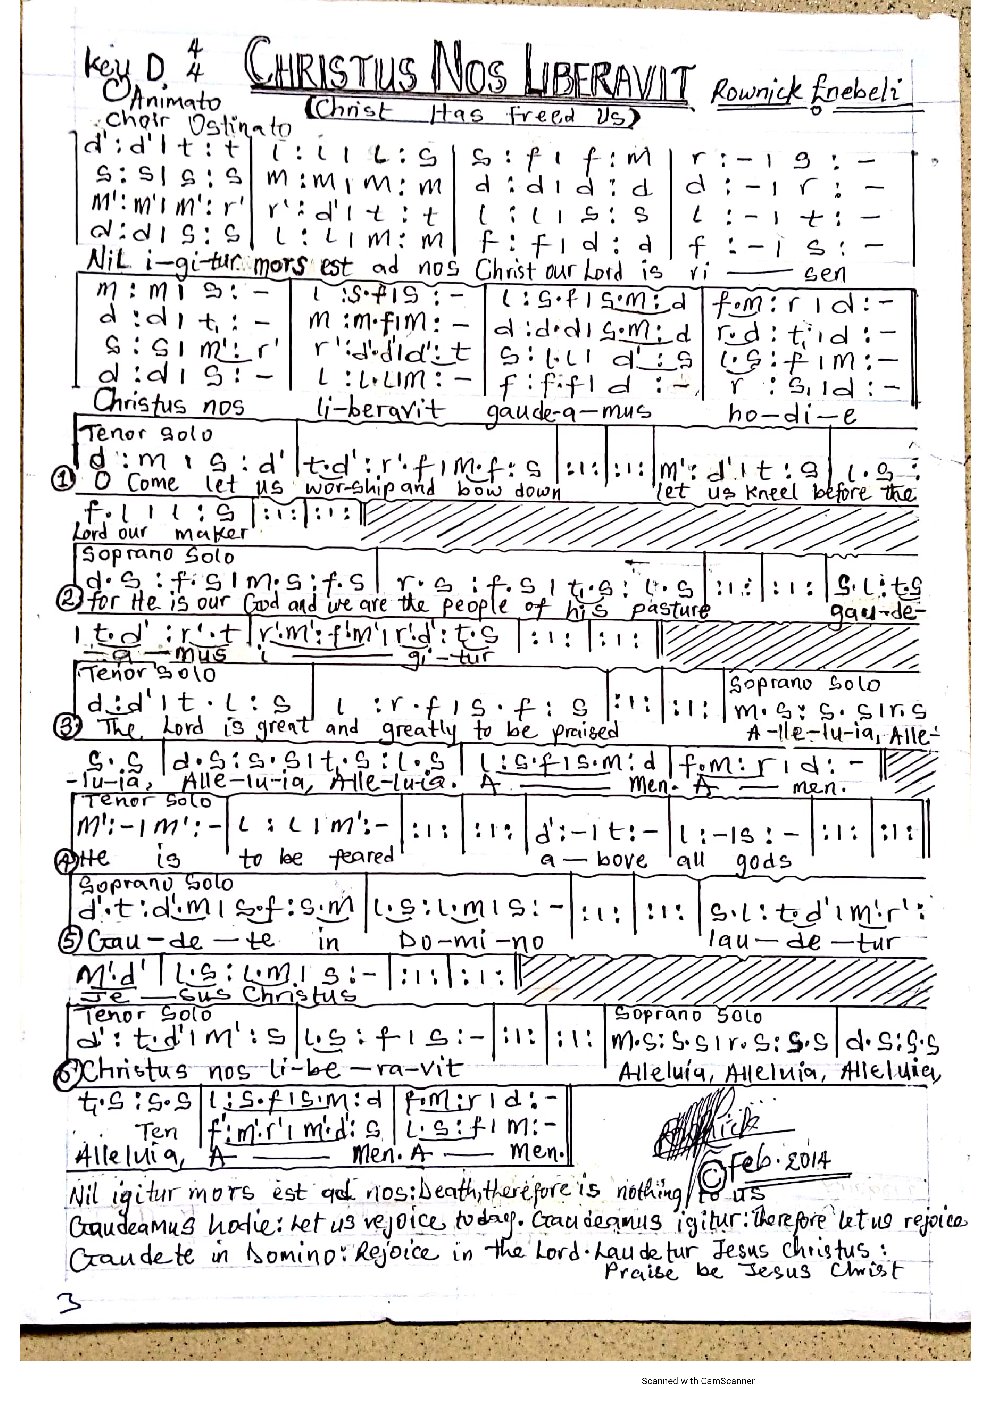 Key D 4/4 CHRISTUS NOS LIBERAVIT Rownick Enebeli
Animato (Christ Has freed Us)
Choir Ostinato
d' : d' | t : t | l : l | l : s | s : f | f : m | r : - | s : -
s : s | s : s | m : m | m : m | d : d | d : d | d : - | r : -
m' : m' | m' : r' | r' : d' | t : t | l : l | s : s | l : - | t : -
d : d | s : s | l : l | m : m | f : f | d : d | f : - | s : -
Nil i-gi-tur mors est ad nos Christ our Lord is ri — sen
m : m | s : - | l : s.f | s : - | l : s.f | s.m : d | f.m : r | d : -
d : d | t, : - | m : m.f | m : - | d : d.d | s.m : d | r.d : t, | d : -
s : s | m' : r' | r' : d'.d' | d' : t | s : l.l | d' : s | l.s : f | m : -
d : d | s : - | l : l.l | m : - | f : f.f | d : - | r : s, | d : -
Christus nos li-beravit gaude-a-mus ho-di-e
Tenor Solo
d : m | s : d' | t.d' : r'.f | m.f : s | : | : | : | : | m' : d' | t : s | l.s :
① O Come let us wor-ship and bow down let us kneel before the
f.l | l : s | : | : | : | : ||
Lord our maker
Soprano Solo
d.s : f.s | m.s : f.s | r.s : f.s | t,.s : l,.s | : | : | : | : | s.l : t.s
② for He is our God and we are the people of his pasture gau-de-
| t.d' : r'.t | r'.m' : f'.m' | r'.d' : t.s | : | : | : | : ||
a — mus i — gi-tur
Tenor Solo Soprano Solo
d : d' | t . l : s | l : r.f | s.f : s | : | : | : | : | m.s : s.s | r.s
③ The Lord is great and greatly to be praised A-lle-lu-ia, Alle-
s.s | d.s : s.s | t,.s : l,.s | l : s.f | s.m : d | f.m : r | d : - ||
-lu-ia, Alle-lu-ia, Alle-luia. A — men. A — men.
Tenor Solo
m' : - | m' : - | l : l | m' : - | : | : | : | : | d' : - | t : - | l : - | s : - | : | : | : | : ||
④ He is to be feared a-bove all gods
Soprano Solo
d'.t : d'.m | s.f : s.m | l.s : l.m | s : - | : | : | : | : | s.l : t.d' | m'.r' :
⑤ Gau-de-te in Do-mi-no lau-de-tur
m'.d' | l.s : l.m | s : - | : | : | : | : ||
Je — sus Christus
Tenor Solo Soprano Solo
d' : t.d' | m' : s | l.s : f | s : - | : | : | : | : | m.s : s.s | r.s : s.s | d.s : s.s
⑥ Christus nos li-be-ra-vit Alleluia, Alleluia, Alleluia,
t,.s : s.s | l : s.f | s.m : d | f.m : r | d : - ||
Ten f'.m' : r' | m'.d' : s | l.s : f | m : - ||
Alleluia, A — Men. A — men.
© Feb. 2014
Nil igitur mors est ad nos: Death, therefore is nothing to us
Gaudeamus hodie: Let us rejoice today. Gaudeamus igitur: Therefore let us rejoice
Gaudete in Domino: Rejoice in the Lord. Laudetur Jesus Christus:
Praise be Jesus Christ
3
Scanned with CamScanner